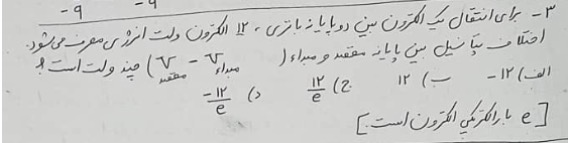 -۹ -۹
۳- برای انتقال یک الکترون بین دو پایانه باتری، ۱۲ الکترون ولت انرژی مصرف می‌شود.
اختلاف پتانسیل بین پایانه مقصد و مبداء (V مبداء - V مقصد) چند ولت است؟
الف) ۱۲- ب) ۱۲ ج) ۱۲/e د) -۱۲/e
[e بار الکتریکی الکترون است.]